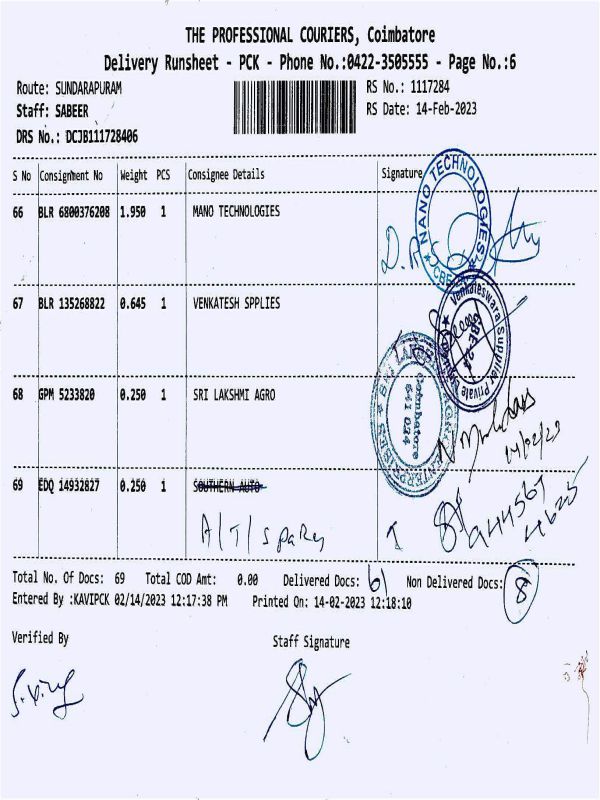 THE PROFESSIONAL COURIERS, Coimbatore
Delivery Runsheet - PCK - Phone No.:0422-3505555 - Page No.:6
Route: SUNDARAPURAM RS No.: 1117284
Staff: SABEER RS Date: 14-Feb-2023
DRS No.: DCJB111728406
S No Consignment No Weight PCS Consignee Details Signature
66 BLR 6800376208 1.950 1 MANO TECHNOLOGIES
NANO TECHNOLOGIES
67 BLR 135268822 0.645 1 VENKATESH SPPLIES
Venkateswara Supplier Private
68 GPM 5233820 0.250 1 SRI LAKSHMI AGRO
Coimbatore
641 024
ENTERPRISES
14/02/23
69 EDQ 14932827 0.250 1 SOUTHERN AUTO
A/T/spares
Total No. Of Docs: 69 Total COD Amt: 0.00 Delivered Docs: 61 Non Delivered Docs: 8
Entered By :KAVIPCK 02/14/2023 12:17:38 PM Printed On: 14-02-2023 12:18:10
Verified By Staff Signature